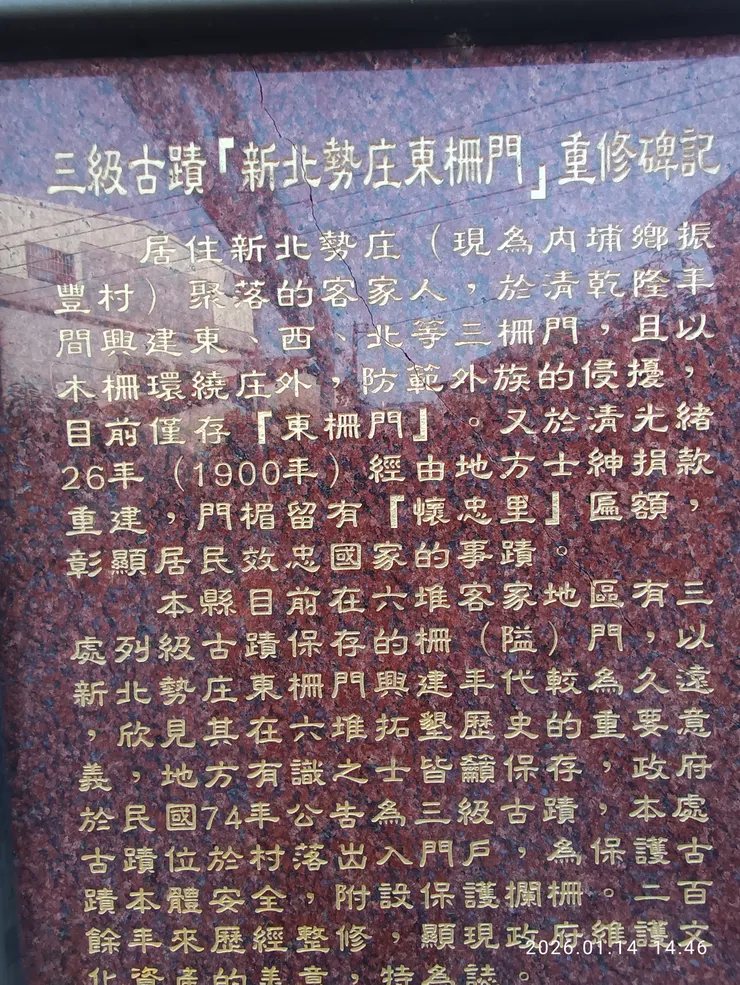 三級古蹟「新北勢庄東柵門」重修碑記
居住新北勢庄（現為內埔鄉振
豐村）聚落的客家人，於清乾隆年
間興建東、西、北等三柵門，且以
木柵環繞庄外，防範外族的侵擾，
目前僅存『東柵門』。又於清光緒
26年（1900年）經由地方士紳捐款
重建，門楣留有『懷忠里』匾額，
彰顯居民效忠國家的事蹟。
本縣目前在六堆客家地區有三
處列級古蹟保存的柵（隘）門，以
新北勢庄東柵門的興建年代較為久遠
，欣見其在六堆拓墾歷史的重要意
義，地方有識之士皆籲保存，政府
於民國74年公告為三級古蹟，本處
古蹟位於村落出入門戶，為保護古
蹟本體安全，附設保護欄柵。二百
餘年來歷經整修，顯現政府維護文
化資產的美意，特為誌。
2026.01.14 14:46